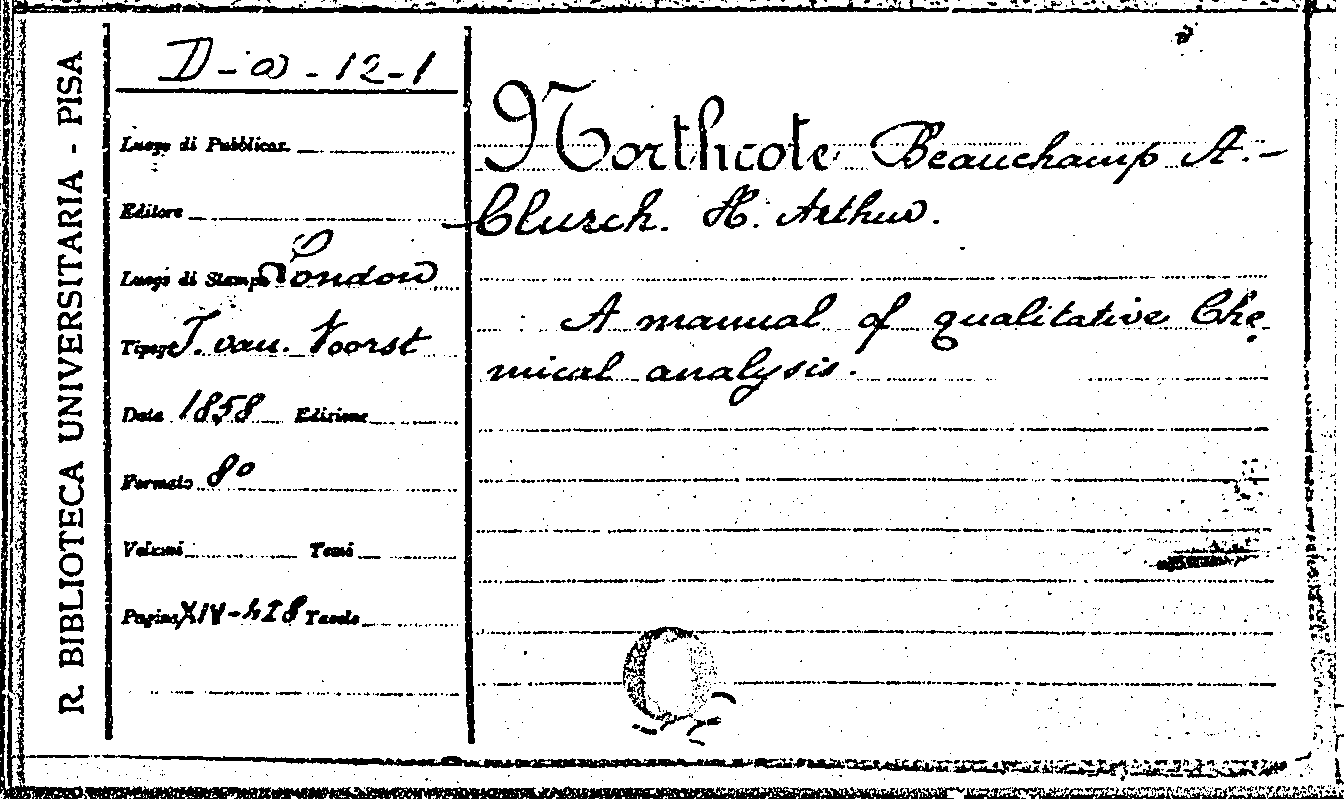 R. BIBLIOTECA UNIVERSITARIA - PISA
D-a-12-1
Luogo di Pubblicaz.
Editore
Luogo di Stampa London
Tipogr. J. van. Voorst
Data 1858 Edizione
Formato 8º
Volumi Tomi
Pagine XIV-428 Tavole
Northcote Beauchamp A. -
- Clursch. H. Arthur.
A manual of qualitative Che
mical analysis.